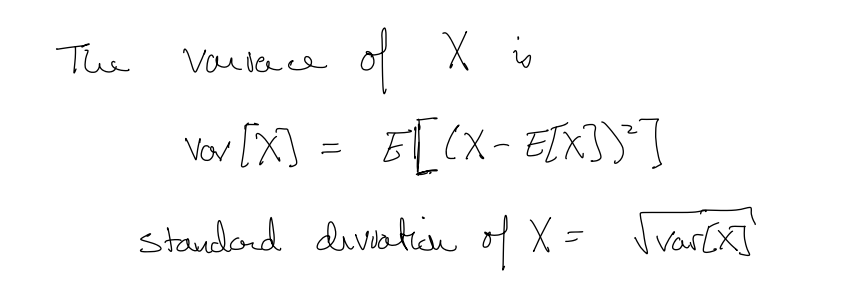 The variance of X is
var[X] = E[(X - E[X])²]
standard deviation of X = √var[X]